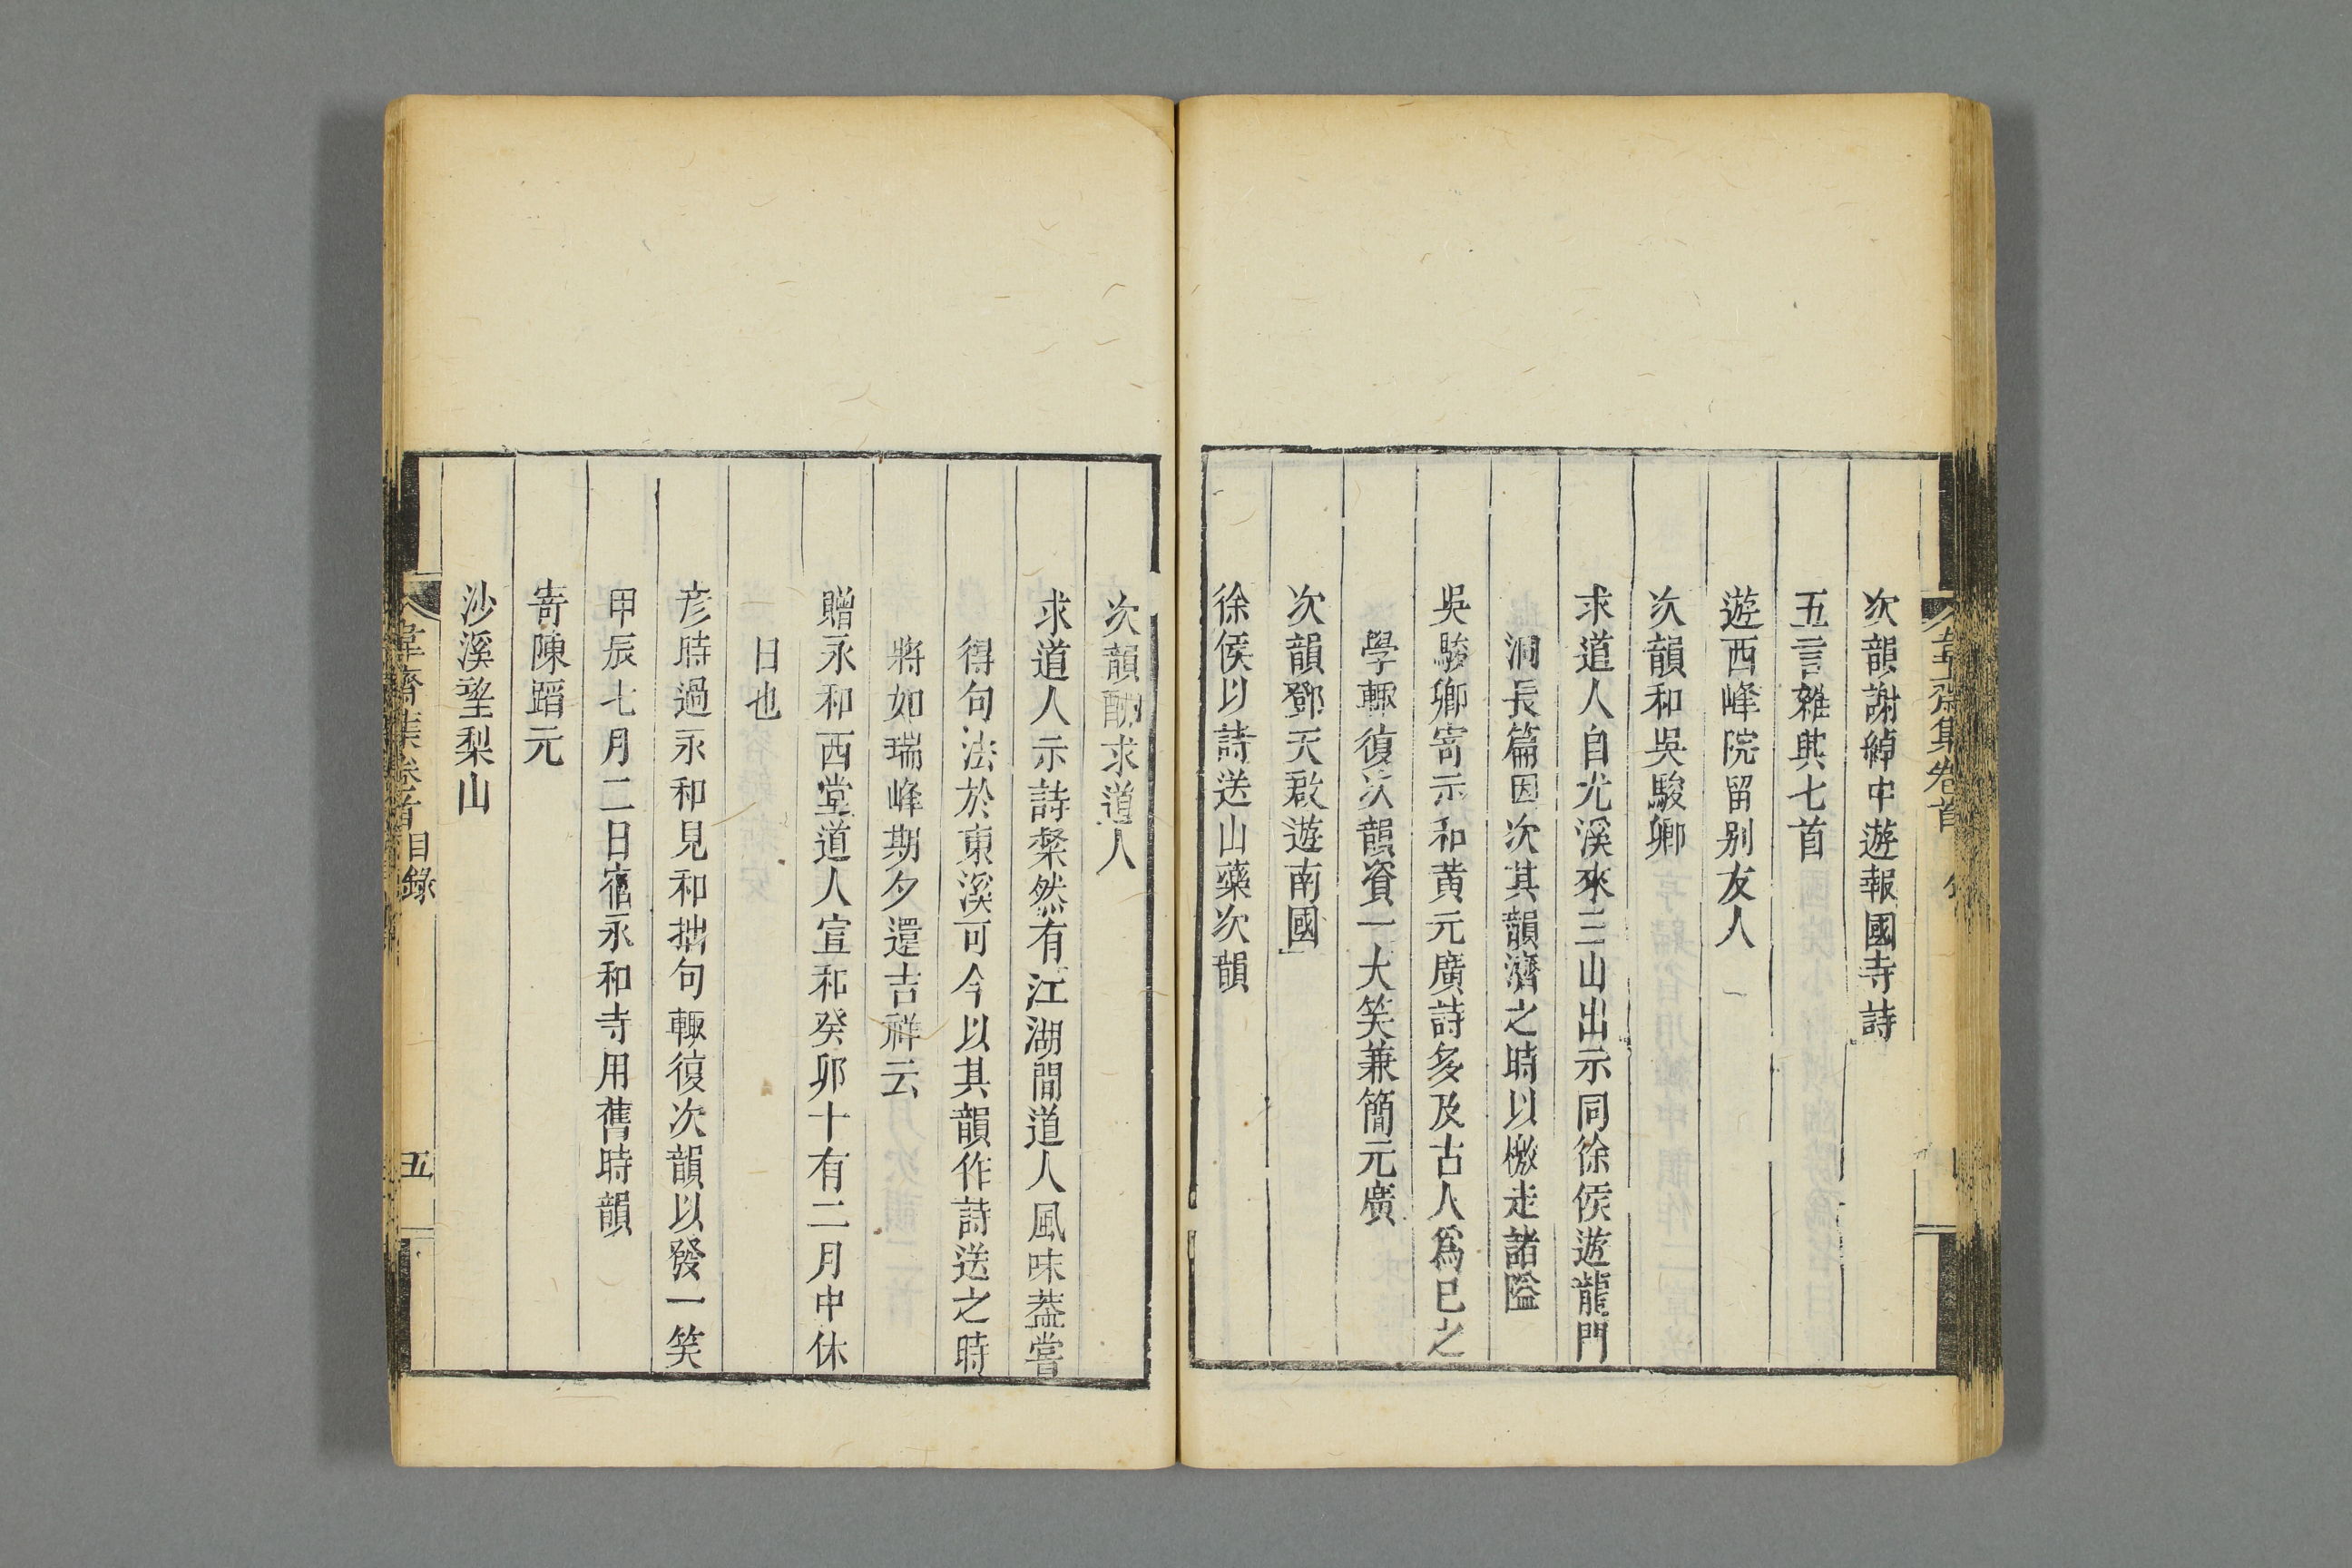 韋齋集卷首
次韻謝綽中遊報國寺詩
五言雜興七首
遊西峰院留别友人
次韻和吳駿卿
求道人自尤溪來三山出示同徐侯遊龍門
洞長篇因次其韻濟之時以檄走諸隘
吳駿卿寄示和黄元廣詩多及古人爲巳之
學輙復次韻資一大笑兼簡元廣
次韻鄧天啟遊南國
徐侯以詩送山藥次韻
次韻酬求道人
求道人示詩粲然有江湖間道人風味葢嘗
得句法於東溪可今以其韻作詩送之時
將如瑞峰期夕還吉祥云
贈永和西堂道人宣和癸卯十有二月中休
日也
彦時過永和見和拙句輙復次韻以發一笑
甲辰七月二日宿永和寺用舊時韻
寄陳蹈元
沙溪望梨山
韋齋集卷首目錄
五